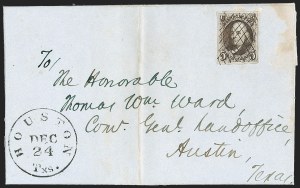 5
To
The Honorable
Thomas Wm Ward,
Com. Genl. Landoffice,
Austin,
Texas
HOUSTON
DEC
24
Txs.